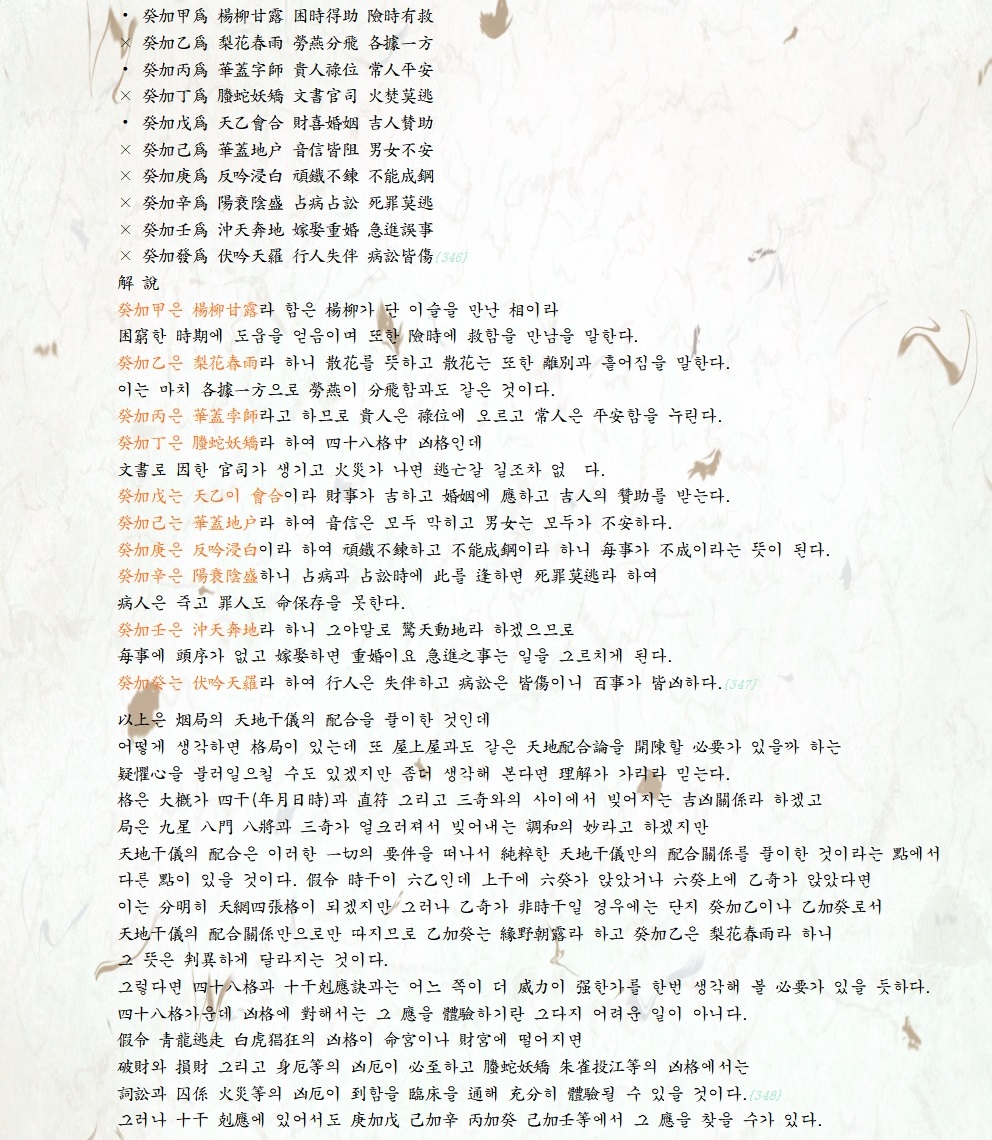 • 癸加甲爲 楊柳甘露 困時得助 險時有救
× 癸加乙爲 梨花春雨 勞燕分飛 各據一方
• 癸加丙爲 華蓋孛師 貴人祿位 常人平安
× 癸加丁爲 螣蛇妖矯 文書官司 火焚莫逃
• 癸加戊爲 天乙會合 財喜婚姻 吉人贊助
× 癸加己爲 華蓋地户 音信皆阻 男女不安
× 癸加庚爲 反吟浸白 頑鐵不鍊 不能成鋼
× 癸加辛爲 陽衰陰盛 占病占訟 死罪莫逃
× 癸加壬爲 沖天奔地 嫁娶重婚 急進誤事
× 癸加發爲 伏吟天羅 行人失伴 病訟皆傷{346}
解 說
癸加甲은 楊柳甘露라 함은 楊柳가 단 이슬을 만난 相이라
困窮한 時期에 도움을 얻음이며 또한 險時에 救함을 만남을 말한다.
癸加乙은 梨花春雨라 하니 散花를 뜻하고 散花는 또한 離別과 흩어짐을 말한다.
이는 마치 各據一方으로 勞燕이 分飛함과도 같은 것이다.
癸加丙은 華蓋孛師라고 하므로 貴人은 祿位에 오르고 常人은 平安함을 누린다.
癸加丁은 螣蛇妖矯라 하여 四十八格中 凶格인데
文書로 因한 官司가 생기고 火災가 나면 逃亡갈 길조차 없 다.
癸加戊는 天乙이 會合이라 財事가 吉하고 婚姻에 應하고 吉人의 贊助를 받는다.
癸加己는 華蓋地户라 하여 音信은 모두 막히고 男女는 모두가 不安하다.
癸加庚은 反吟浸白이라 하여 頑鐵不鍊하고 不能成鋼이라 하니 每事가 不成이라는 뜻이 된다.
癸加辛은 陽衰陰盛하니 占病과 占訟時에 此를 逢하면 死罪莫逃라 하여
病人은 죽고 罪人도 命保存을 못한다.
癸加壬은 沖天奔地라 하니 그야말로 驚天動地라 하겠으므로
每事에 頭序가 없고 嫁娶하면 重婚이요 急進之事는 일을 그르치게 된다.
癸加癸는 伏吟天羅라 하여 行人은 失伴하고 病訟은 皆傷이니 百事가 皆凶하다.{347}
以上은 烟局의 天地干儀의 配合을 풀이한 것인데
어떻게 생각하면 格局이 있는데 또 屋上屋과도 같은 天地配合論을 開陳할 必要가 있을까 하는
疑懼心을 불러일으킬 수도 있겠지만 좀더 생각해 본다면 理解가 가리라 믿는다.
格은 大槪가 四干(年月日時)과 直符 그리고 三奇와의 사이에서 빚어지는 吉凶關係라 하겠고
局은 九星 八門 八將과 三奇가 얼크러져서 빚어내는 調和의 妙라고 하겠지만
天地干儀의 配合은 이러한 一切의 要件을 떠나서 純粹한 天地干儀만의 配合關係를 풀이한 것이라는 點에서
다른 點이 있을 것이다. 假令 時干이 六乙인데 上干에 六癸가 앉았거나 六癸上에 乙奇가 앉았다면
이는 分明히 天網四張格이 되겠지만 그러나 乙奇가 非時干일 경우에는 단지 癸加乙이나 乙加癸로서
天地干儀의 配合關係만으로만 따지므로 乙加癸는 緣野朝露라 하고 癸加乙은 梨花春雨라 하니
그 뜻은 判異하게 달라지는 것이다.
그렇다면 四十八格과 十干剋應訣과는 어느 쪽이 더 威力이 强한가를 한번 생각해 볼 必要가 있을 듯하다.
四十八格가운데 凶格에 對해서는 그 應을 體驗하기란 그다지 어려운 일이 아니다.
假令 靑龍逃走 白虎猖狂의 凶格이 命宮이나 財宮에 떨어지면
破財와 損財 그리고 身厄等의 凶厄이 必至하고 螣蛇妖矯 朱雀投江等의 凶格에서는
詞訟과 囚係 火災等의 凶厄이 到함을 臨床을 通해 充分히 體驗될 수 있을 것이다.{348}
그러나 十干 剋應에 있어서도 庚加戊 己加辛 丙加癸 己加壬等에서 그 應을 찾을 수가 있다.